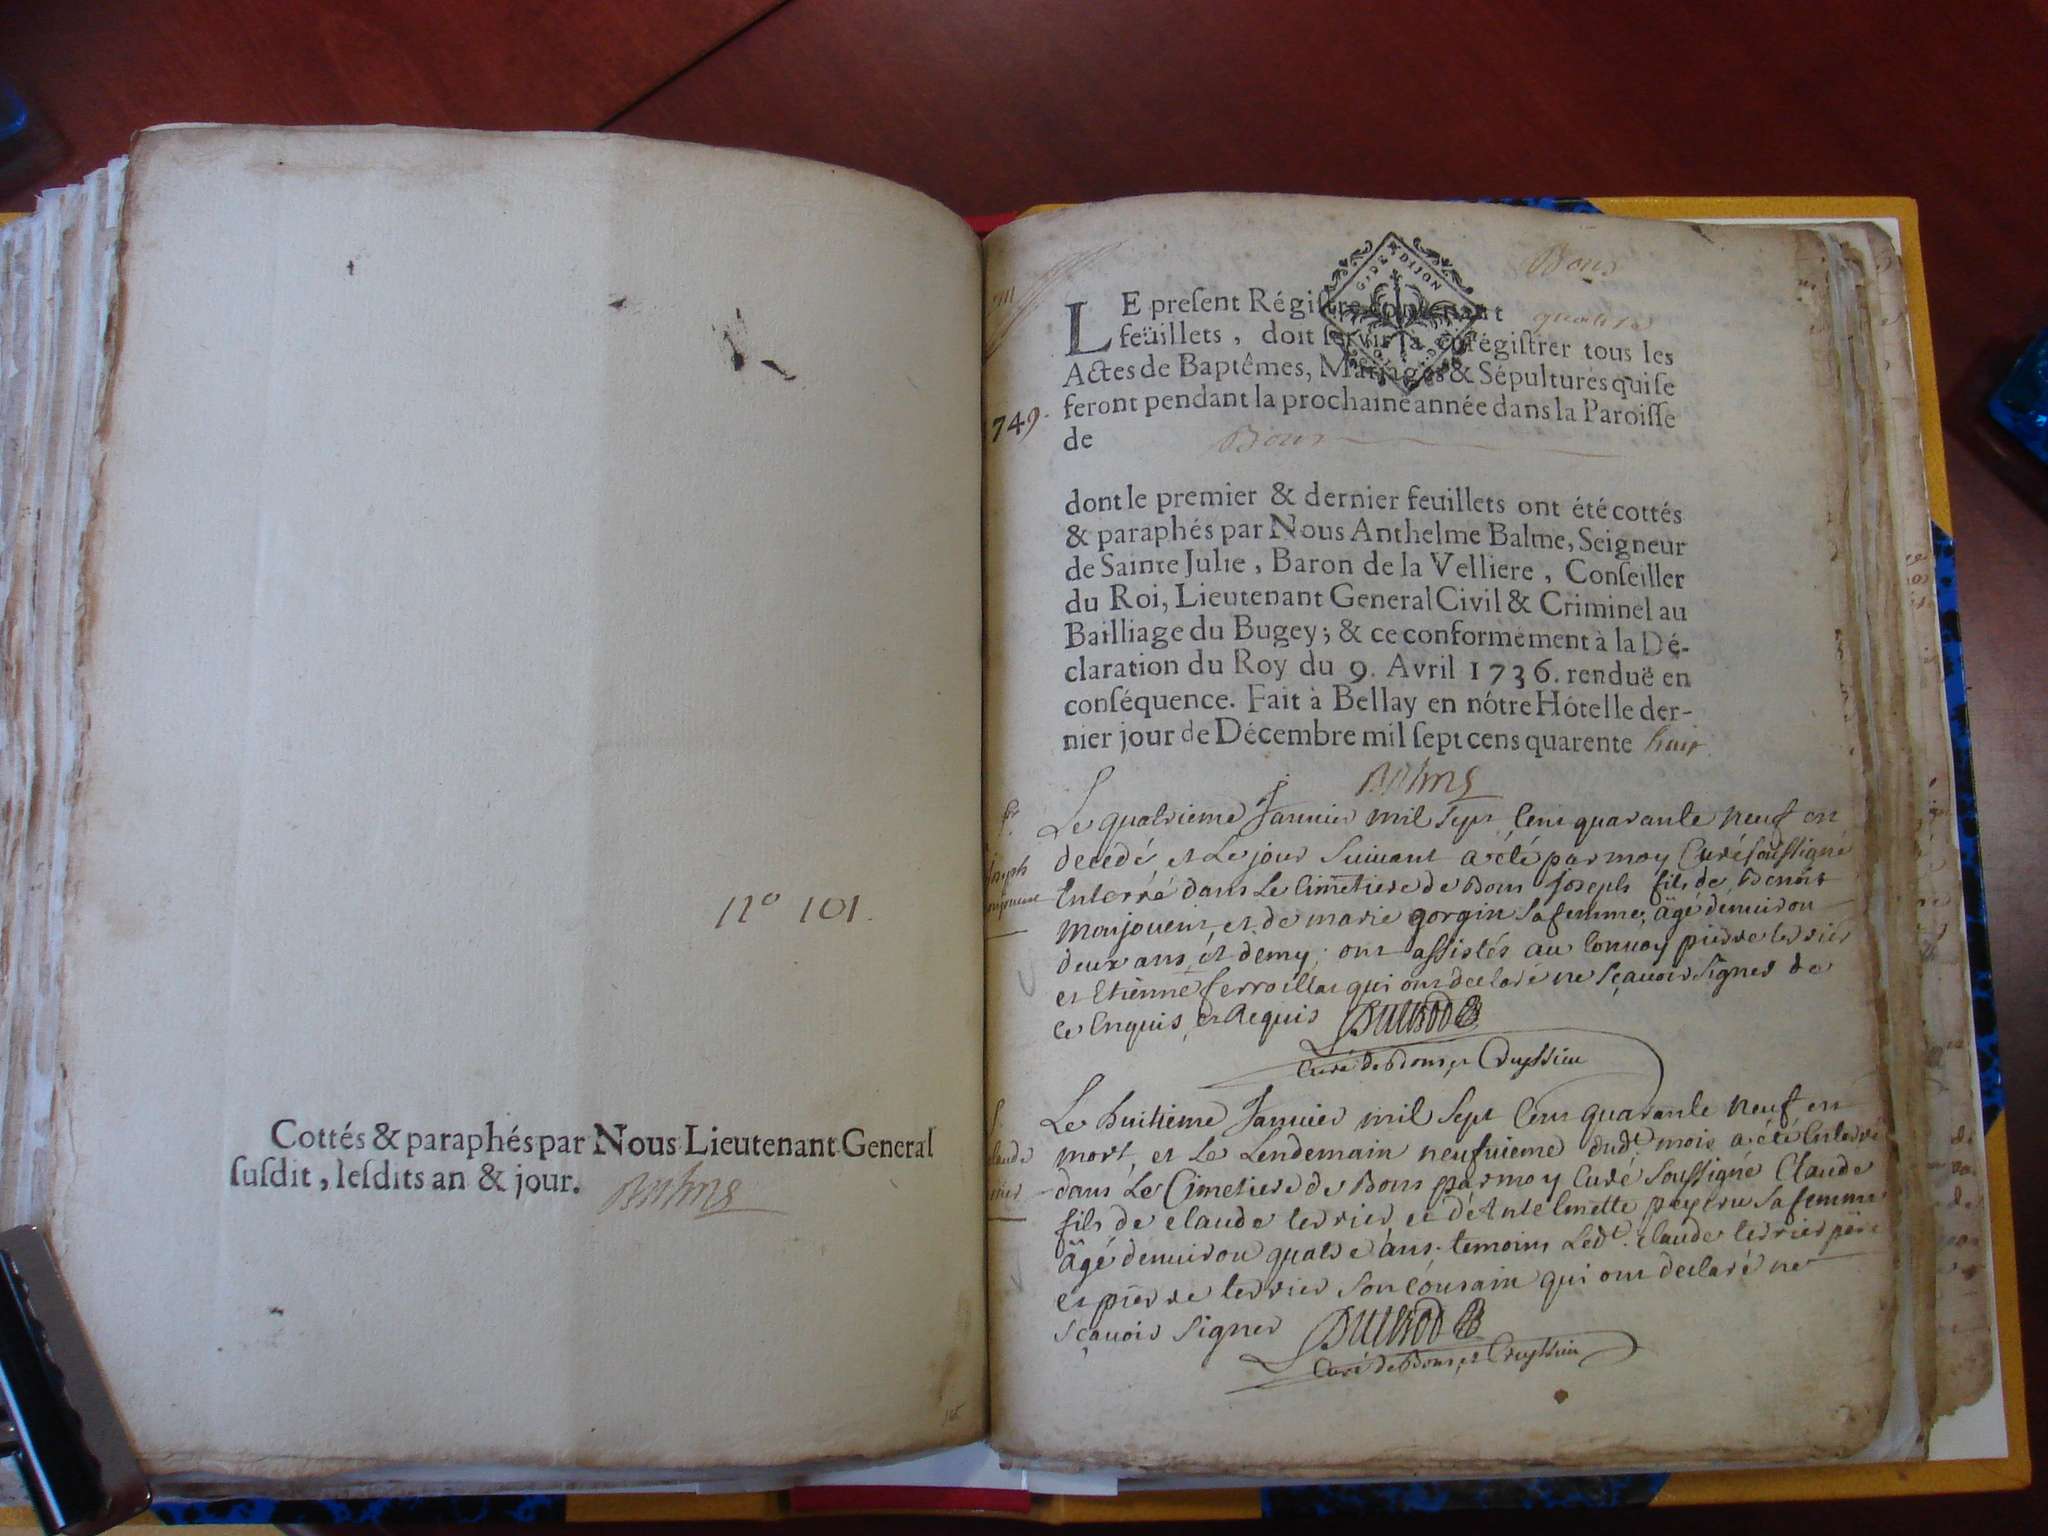 n° 101.
Cottés & paraphés par Nous Lieutenant General
susdit, lesdits an & jour. Balme
165
Bons
G. DE DIJON
1749.
LE present Régistre contenant quatre
feüillets, doit servir à enrégistrer tous les
Actes de Baptêmes, Mariages & Sépultures qui se
feront pendant la prochaine année dans la Paroisse
de Bons
dont le premier & dernier feuillets ont été cottés
& paraphés par Nous Anthelme Balme, Seigneur
de Sainte Julie, Baron de la Velliere, Conseiller
du Roi, Lieutenant General Civil & Criminel au
Bailliage du Bugey; & ce conformément à la Dé-
claration du Roy du 9. Avril 1736. renduë en
conséquence. Fait à Bellay en nôtre Hôtel le der-
nier jour de Décembre mil sept cens quarente huit
Balme
Joseph
Le quatrieme Janvier mil sept cens quarante neuf est
decedé et Le jour suivant a été par moy Curé soussigné
Enterré dans Le Cimetiere de Bons Joseph fils de Benoit
Monjouent, et de marie gorgin sa femme, âgé d'enuiron
deux ans et demy; ont assistés au Convoy pierre terrier
et Etienne ferroillat qui ont declaré ne sçauoir signer de
ce Enquis et Requis
Curé de Bons, et Cheyssieu
Claude
terrier
Le huitieme Janvier mil sept cens quarante neuf est
mort, et Le Lendemain neufuieme dud.t mois a été Enterré
dans Le Cimetiere de Bons par moy Curé soussigné Claude
fils de claude terrier et d'Antelmette peytru sa femme
âgé d'enuiron quatre ans. temoins Led.t claude terrier père
et pierre terrier son cousain qui ont declaré ne
sçauoir signer
Curé de Bons, et Cheyssieu